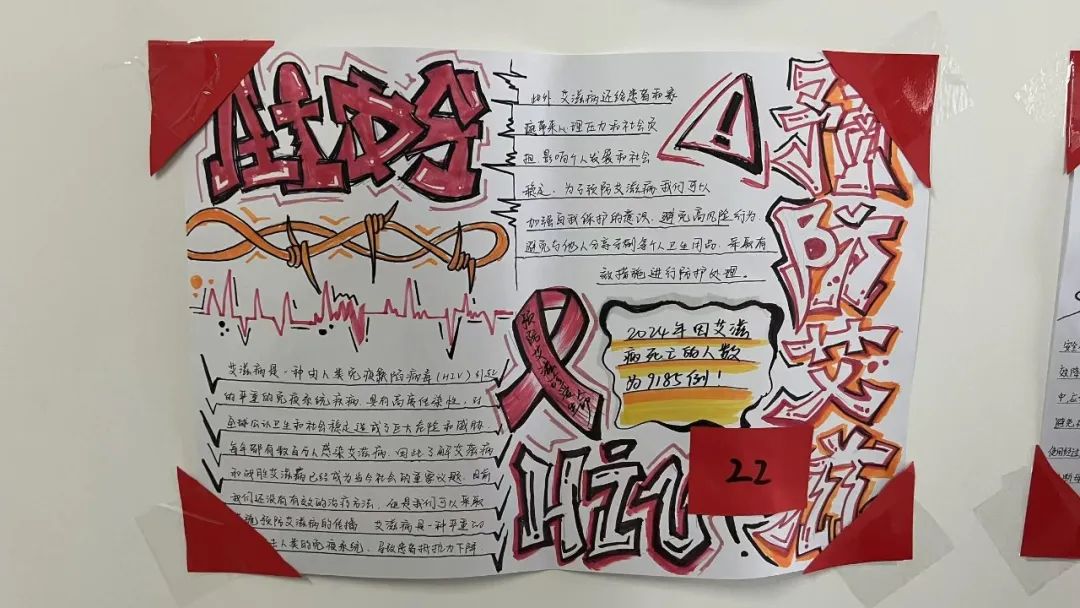 AIDS
此外 艾滋病还给患者和家
庭带来心理压力和社会负
担 影响个人发展和社会
稳定. 为了预防艾滋病 我们可以
加强自我保护的意识. 避免高风险行为.
避免与他人分享 个人卫生用品. 采取有
效措施进行防护处理。
预防艾滋
2024年因艾滋
病死亡的人数
为9185例!
艾滋病是一种由人类免疫缺陷病毒(HIV)引起
的严重的免疫系统疾病. 具有高度传染性. 对
全球公认卫生和社会稳定造成了巨大危险和威胁.
每年都有数百万人感染艾滋病. 因此 了解艾滋病
和战胜艾滋病已经成为当今社会的重要议题. 目前
我们还没有有效的治疗方法. 但是我们可以采取
预防艾滋病的传播 艾滋病是一种严重的
人类的免疫系统. 导致患者抵抗力下降
HiV
22
预
防
艾
滋